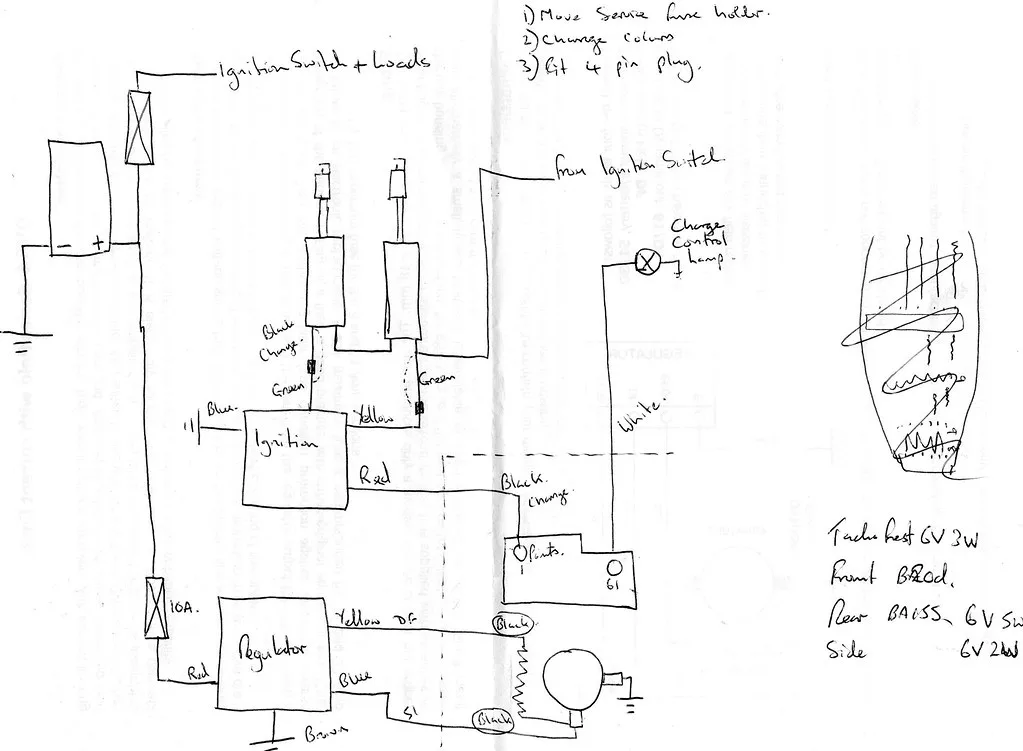 1) Move Service fuse holder.
2) Change Colours
3) Fit 4 pin plug.
Ignition Switch + Loads
from Ignition Switch
Charge
Control
Lamp.
- +
Black
Change.
Green
Green
White.
Blue.
Yellow
Ignition
Red
Black.
Change.
Points.
1
61
10A.
Regulator
Yellow DF
Black
Red
Blue
51
Black
Brown
6V 3W
Front
Rear BA15S, 6V 5W
Side 6V 2W